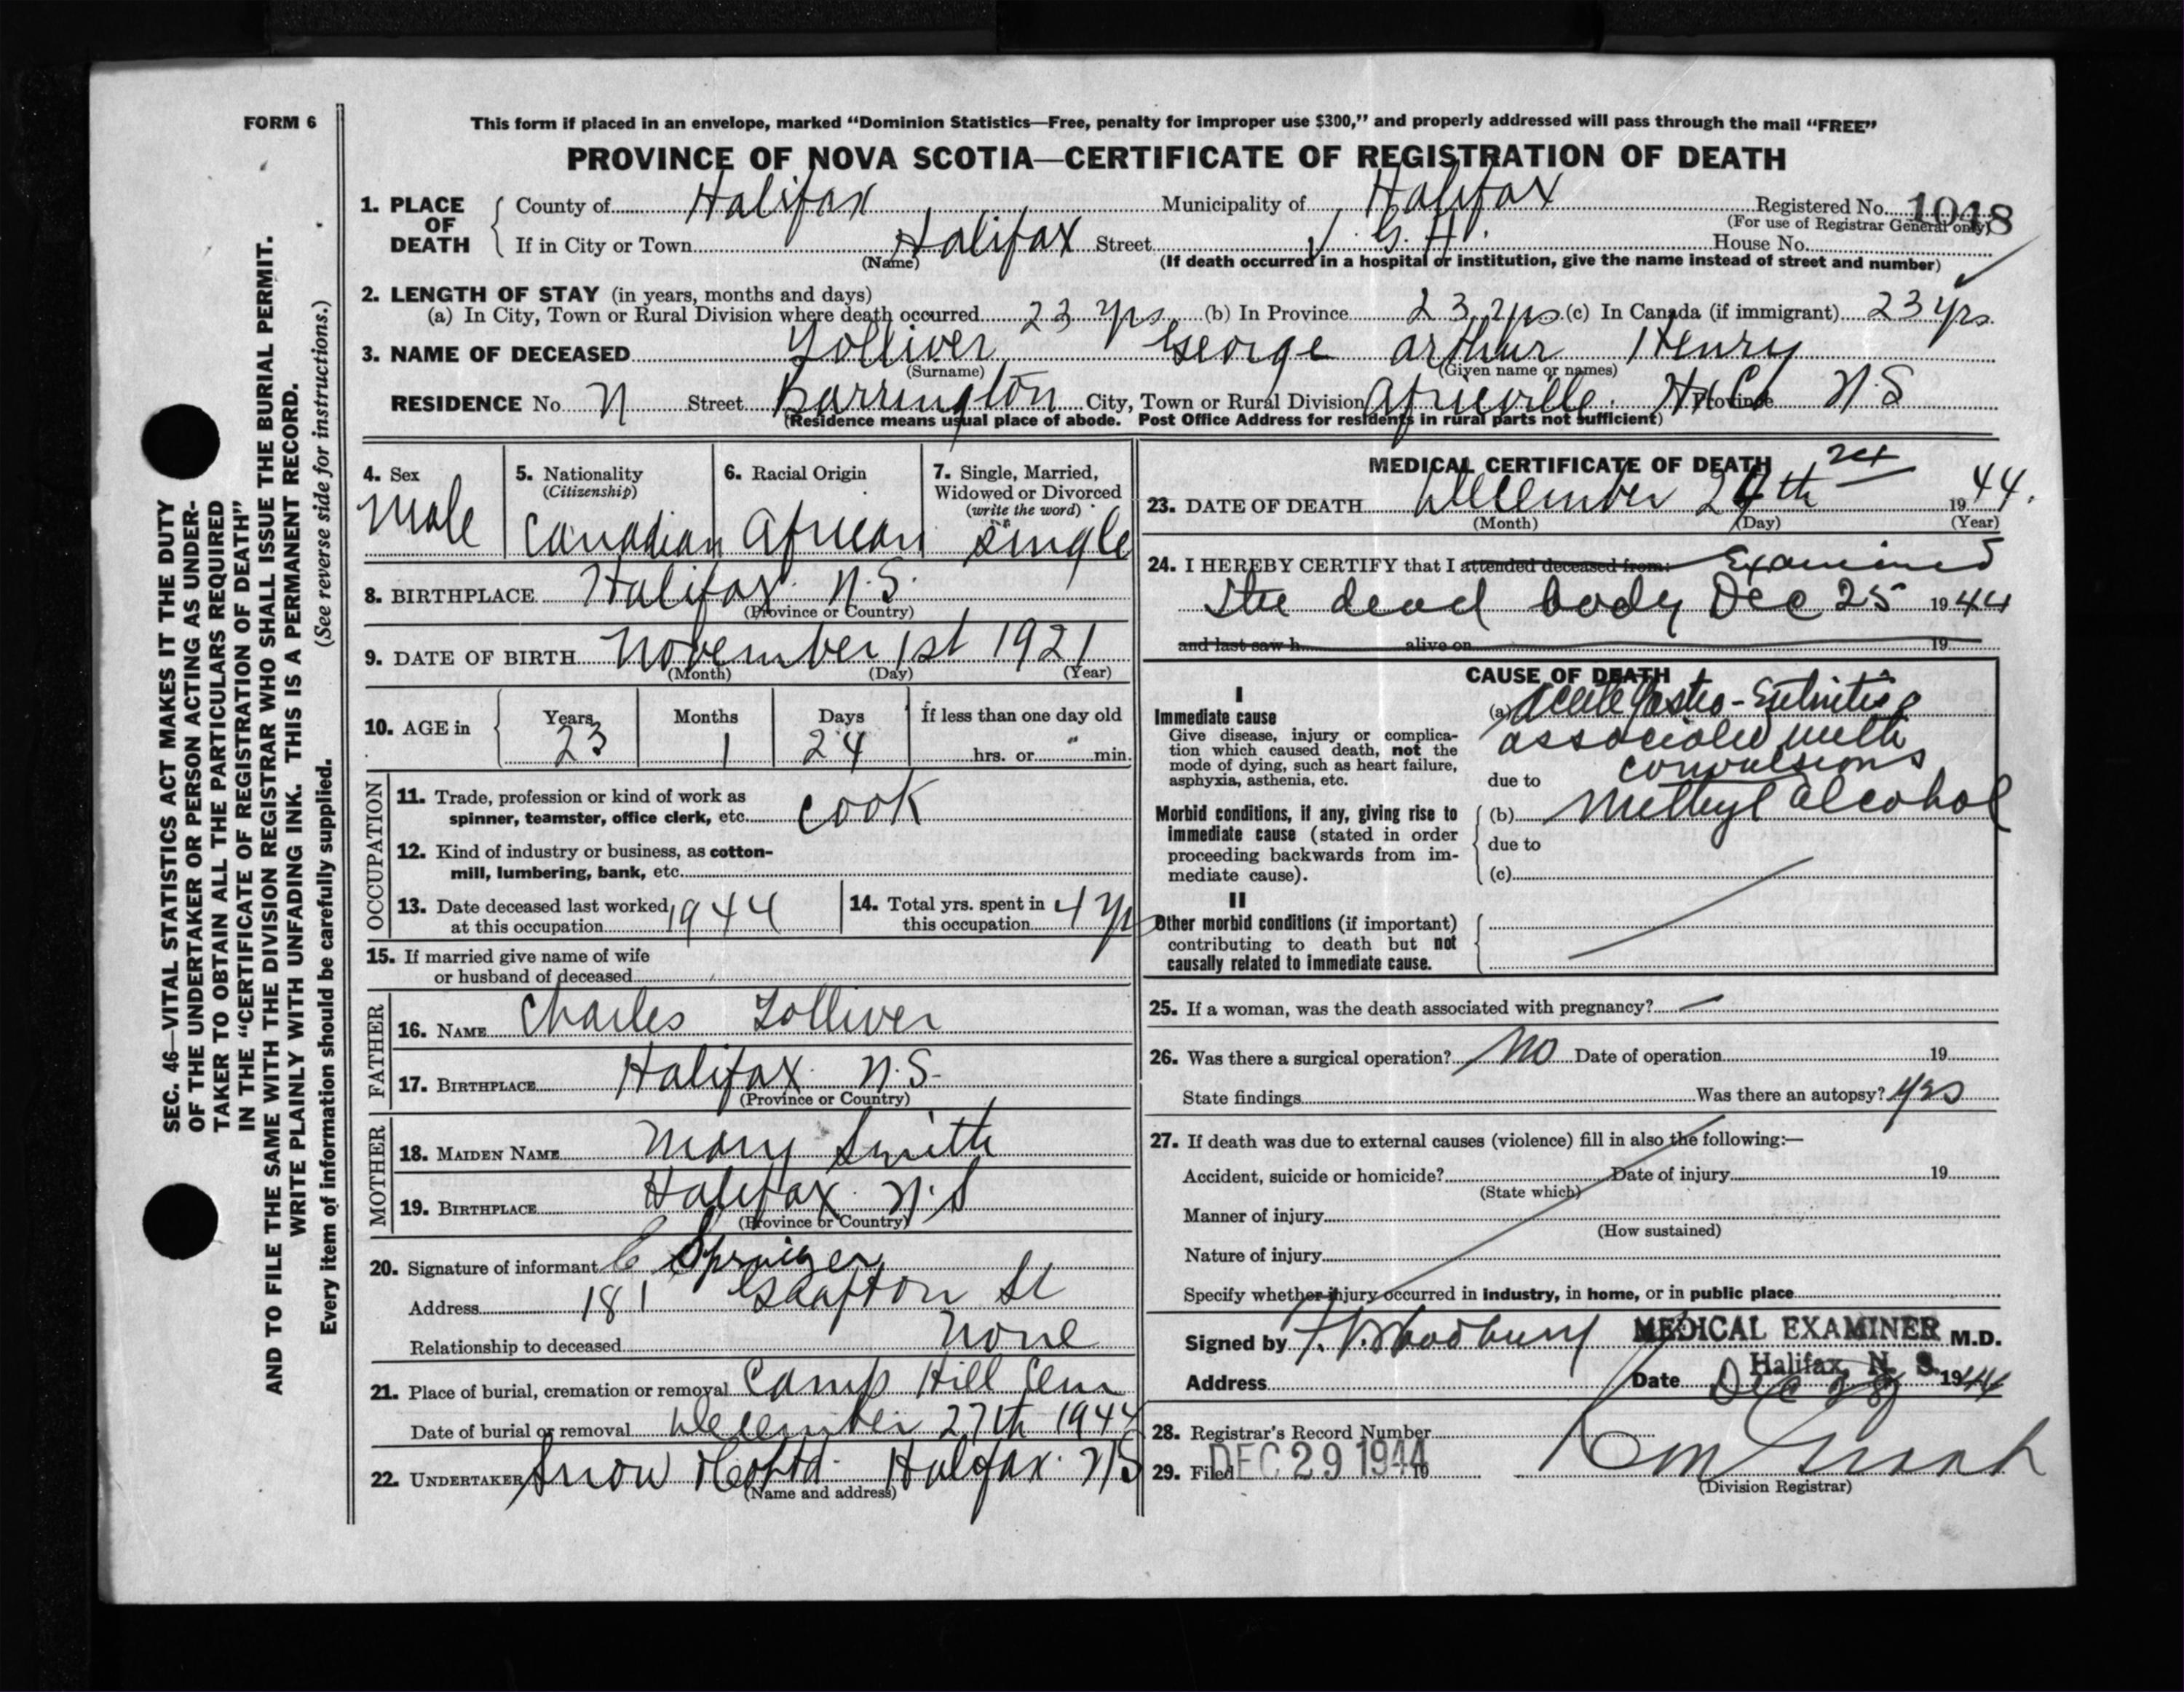 FORM 6
This form if placed in an envelope, marked "Dominion Statistics—Free, penalty for improper use $300," and properly addressed will pass through the mail "FREE"
PROVINCE OF NOVA SCOTIA—CERTIFICATE OF REGISTRATION OF DEATH
1. PLACE OF DEATH County of Halifax Municipality of Halifax Registered No. 1048
(For use of Registrar General only)
If in City or Town Halifax Street V. G. H. House No.
(Name) (If death occurred in a hospital or institution, give the name instead of street and number)
2. LENGTH OF STAY (in years, months and days)
(a) In City, Town or Rural Division where death occurred 23 yrs (b) In Province 23 yrs (c) In Canada (if immigrant) 23 yrs.
3. NAME OF DECEASED Tolliver George Arthur Henry
(Surname) (Given name or names)
RESIDENCE No. N Street Barrington City, Town or Rural Division Africville Hx Co Province N.S
(Residence means usual place of abode. Post Office Address for residents in rural parts not sufficient)
4. Sex
Male
5. Nationality
(Citizenship)
Canadian
6. Racial Origin
African
7. Single, Married,
Widowed or Divorced
(write the word)
Single
8. BIRTHPLACE Halifax N.S.
(Province or Country)
9. DATE OF BIRTH November 1st 1921
(Month) (Day) (Year)
10. AGE in Years Months Days If less than one day old
23 1 24 hrs. or min.
OCCUPATION
11. Trade, profession or kind of work as
spinner, teamster, office clerk, etc. Cook
12. Kind of industry or business, as cotton-
mill, lumbering, bank, etc.
13. Date deceased last worked
at this occupation 1944
14. Total yrs. spent in
this occupation 4 yrs
15. If married give name of wife
or husband of deceased
FATHER
16. NAME Charles Tolliver
17. BIRTHPLACE Halifax N.S.
(Province or Country)
MOTHER
18. MAIDEN NAME Mary Smith
19. BIRTHPLACE Halifax N.S
(Province or Country)
20. Signature of informant C
Address 181 Grafton St
Relationship to deceased None
21. Place of burial, cremation or removal Camp Hill Cem
Date of burial or removal December 27th 1944
22. UNDERTAKER Snow & Co Ltd. Halifax NS
(Name and address)
MEDICAL CERTIFICATE OF DEATH
23. DATE OF DEATH December 24th 24 1944.
(Month) (Day) (Year)
24. I HEREBY CERTIFY that I attended deceased from: Examined
the dead body Dec 25 1944
and last saw h alive on 19
CAUSE OF DEATH
I
Immediate cause
Give disease, injury or complica-
tion which caused death, not the
mode of dying, such as heart failure,
asphyxia, asthenia, etc.
(a) Acute Gastro-Enteritis
associated with
convulsions
due to
Morbid conditions, if any, giving rise to
immediate cause (stated in order
proceeding backwards from im-
mediate cause).
(b) Methyl alcohol
due to
(c)
II
Other morbid conditions (if important)
contributing to death but not
causally related to immediate cause.
25. If a woman, was the death associated with pregnancy? —
26. Was there a surgical operation? No Date of operation 19
State findings Was there an autopsy? yes
27. If death was due to external causes (violence) fill in also the following:—
Accident, suicide or homicide? Date of injury 19
(State which)
Manner of injury
(How sustained)
Nature of injury
Specify whether injury occurred in industry, in home, or in public place
Signed by Woodbury MEDICAL EXAMINER M.D.
Halifax, N. S.
Address Date Dec 28 1944
28. Registrar's Record Number
29. Filed DEC 29 1944 19
(Division Registrar)
SEC. 46—VITAL STATISTICS ACT MAKES IT THE DUTY
OF THE UNDERTAKER OR PERSON ACTING AS UNDER-
TAKER TO OBTAIN ALL THE PARTICULARS REQUIRED
IN THE "CERTIFICATE OF REGISTRATION OF DEATH"
AND TO FILE THE SAME WITH THE DIVISION REGISTRAR WHO SHALL ISSUE THE BURIAL PERMIT.
WRITE PLAINLY WITH UNFADING INK. THIS IS A PERMANENT RECORD.
Every item of information should be carefully supplied. (See reverse side for instructions.)